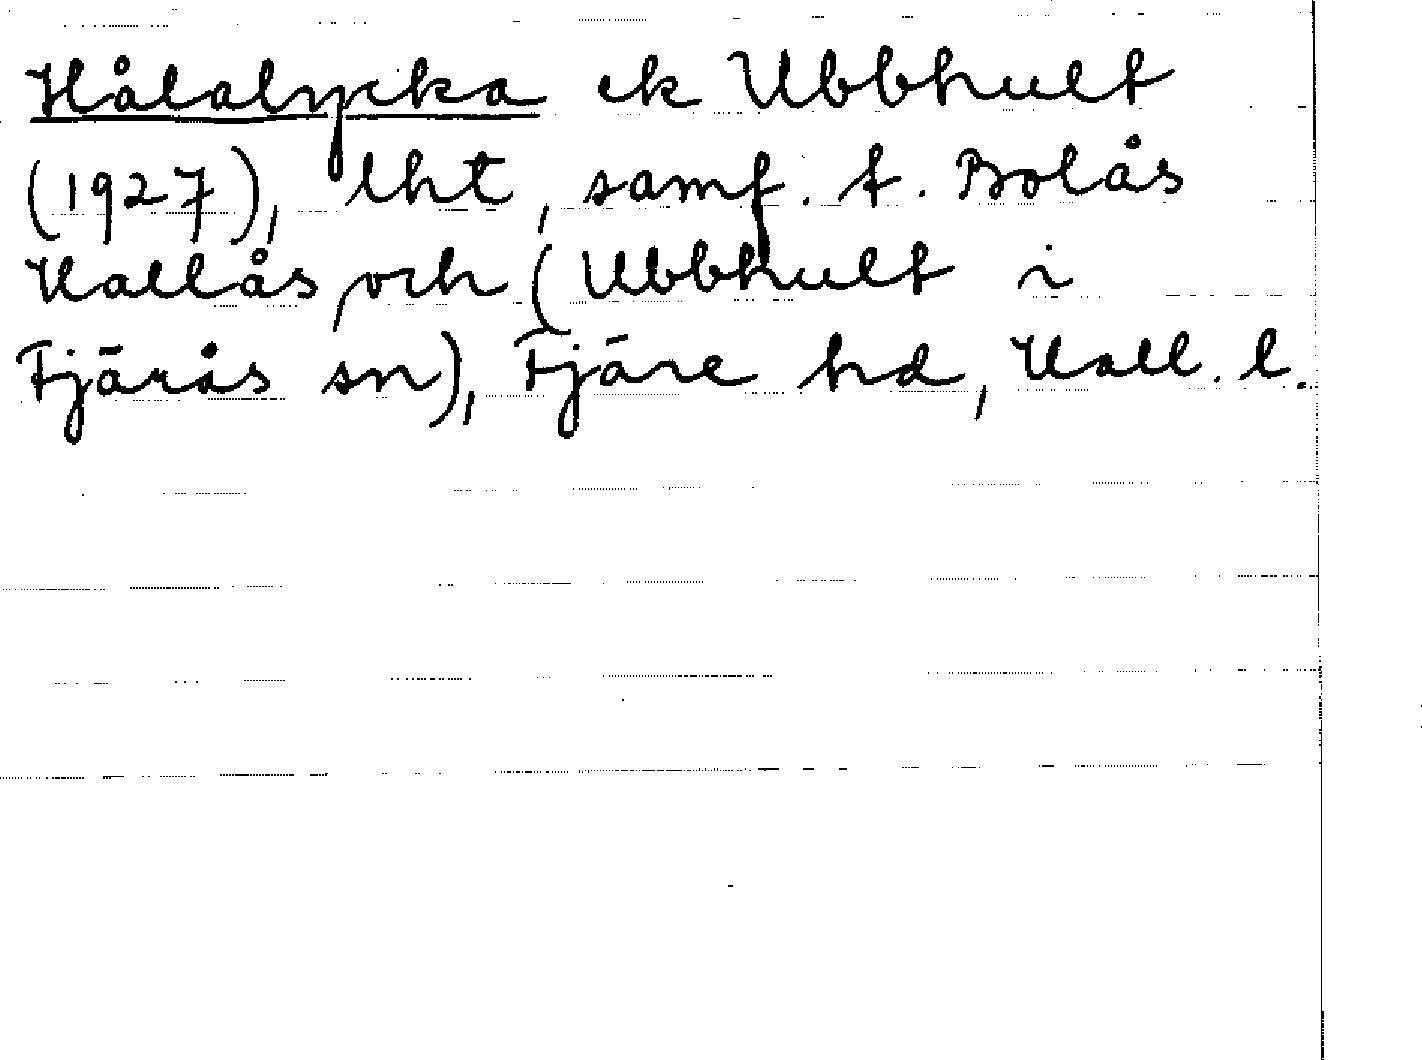 Hålalycka ek Ubbhult
(1927), lht, samf. f. Bolås
Hallås, och (Ubbhult i
Fjärås sn), Fjäre hd, Hall. l.